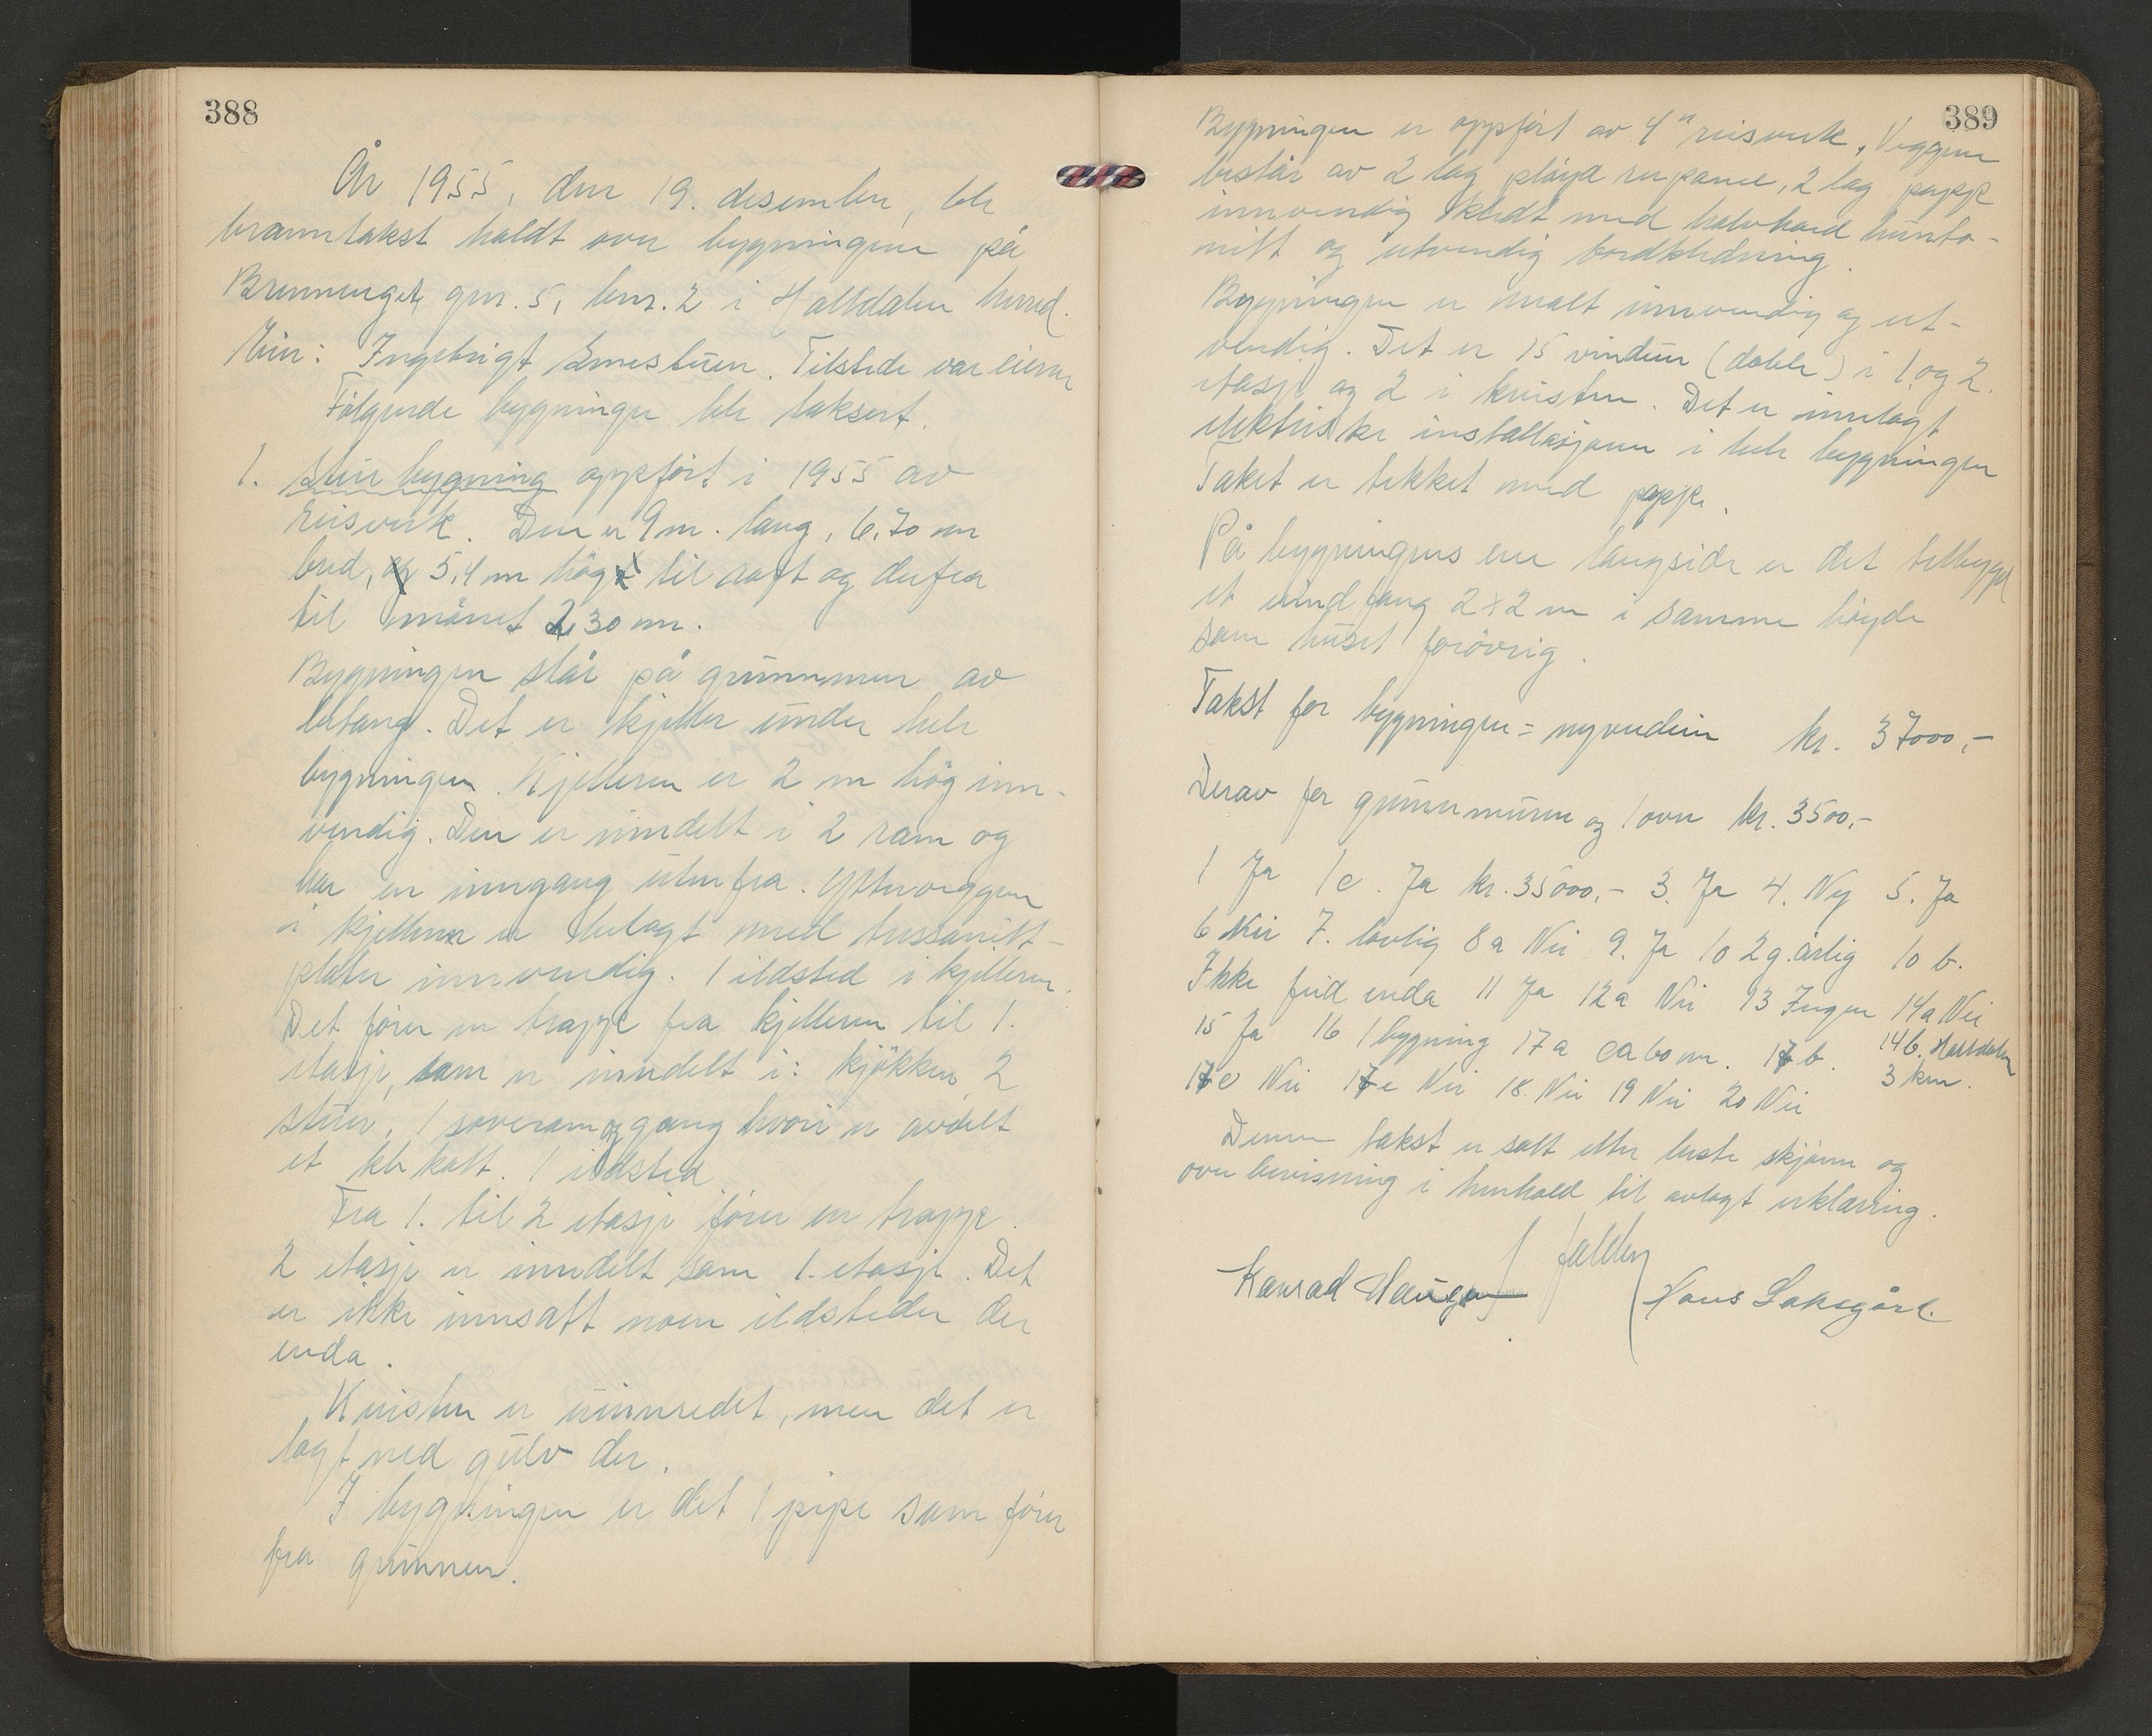 388
År 1955, den 19. desember, ble
branntakst holdt over bygningene på
Brennenget, gnr. 5, bnr. 2 i Haltdalen herred.
Eier: Ingebrigt Ernestuen. Tilstede var eieren
Følgende bygninger ble taksert.
1. Stuebygning oppført i 1955 av
reisverk. Den er 9 m. lang, 6,70 m
bred, og 5,4 m høg til raft og derfra
til mønet 2,30 m.
Bygningen står på grunnmur av
betong. Det er kjeller under hele
bygningen. Kjelleren er 2 m høg inn-
vendig. Den er inndelt i 2 rom og
har en inngang utenfra. Ytterveggene
i kjelleren er belagt med tressonitt-
plater innvendig. 1 ildsted i kjelleren.
Det fører en trapp fra kjelleren til 1.
etasje, som er inndelt i: kjøkken, 2
stuer, 1 soverom og gang hvori er avdelt
et kle kott. 1 ildsted
Fra 1. til 2 etasje fører en trapp.
2 etasje er inndelt som 1. etasje. Det
er ikke innsatt noen ildsteder der
enda.
Kvisten er uinnredet, men det er
lagt ned gulv der.
I bygningen er det 1 pipe som fører
fra grunnen.
389
Bygningen er oppført av 4" reisverk. Veggene
består av 2 lag pløyd rupanel, 2 lag papp
innvendig kledt med halvhard hunto-
nitt og utvendig bordkledning.
Bygningen er malt innvendig og ut-
vendig. Det er 15 vinduer (doble) i 1. og 2.
etasje og 2 i kvisten. Det er innlagt
elektriske installasjoner i hele bygningen
Taket er tekket med papp.
På bygningens ene langside er det tilbygd
et vindfang 2 x 2 m i samme høyde
som huset forøvrig.
Takst for bygningen = nyverdien kr. 37000,-
Derav for grunnmuren og 1 ovn kr. 3500,-
1 Ja 1c. Ja kr. 35000,- 3. Ja 4. Ny 5. Ja
6 Nei 7. lovlig 8a Nei 9. Ja 10 2 g. årlig 10 b.
Ikke feid enda 11 Ja 12a Nei 13 Ingen 14a Nei
15 Ja 16 1 bygning 17a ca 60 m. 17 b. 14b. Haltdalen
17c Nei 17e Nei 18. Nei 19 Nei 20 Nei 3 km.
Denne takst er satt etter beste skjønn og
overbevisning i henhold til avlagt erklæring.
Konrad Haugen Hans Laksgård.